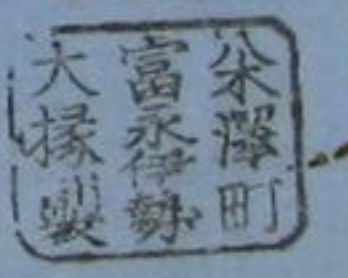 米澤町
富永伊勢
大掾製